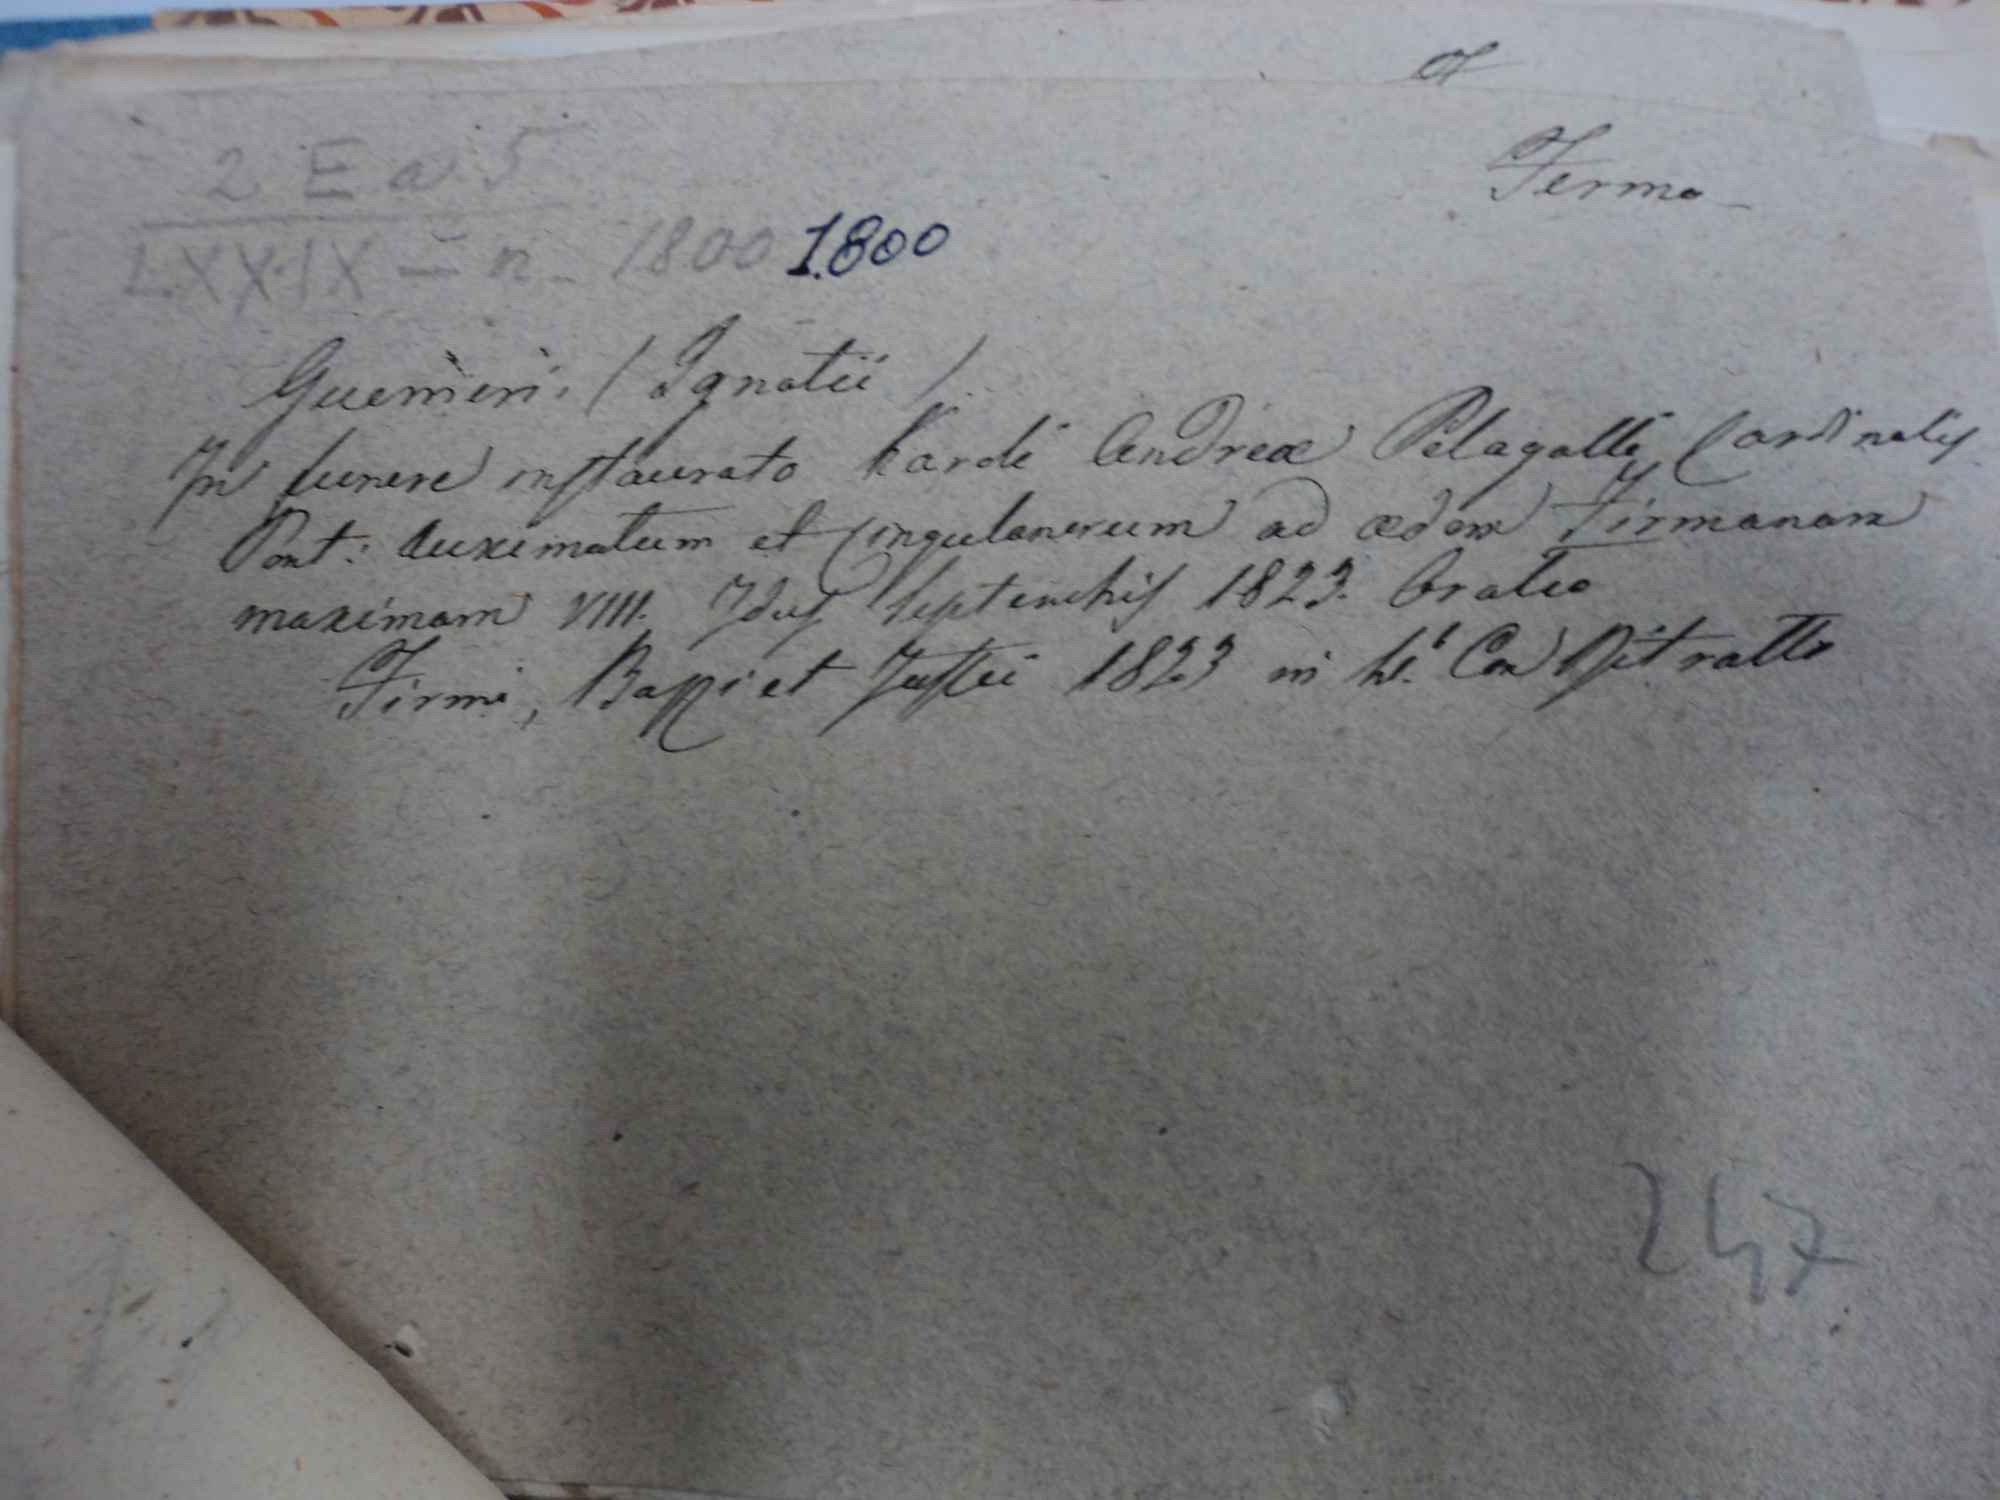 Fermo
2 E a 5
LXXIX - n - 1800 1.800
Guerrieri. (Ignatii)
In funere instaurato Karoli Andreæ Pelagalli Cardinalis
Pont: Auximatum et Cingulanorum ad ædem Firmanam
maximam VIII. Idus Septembris 1823. Oratio
Firmi, Bazzi et Justii 1823 in 4.° Con Ritratto
247